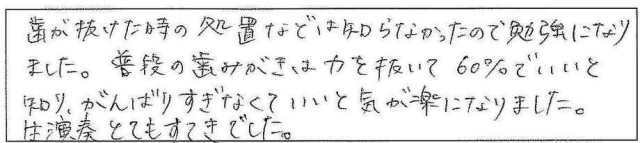 歯が抜けた時の処置などは知らなかったので勉強になり
ました。普段の歯みがきは力を抜いて60%でいいと
知り、がんばりすぎなくていいと気が楽になりました。
生演奏とてもすてきでした。